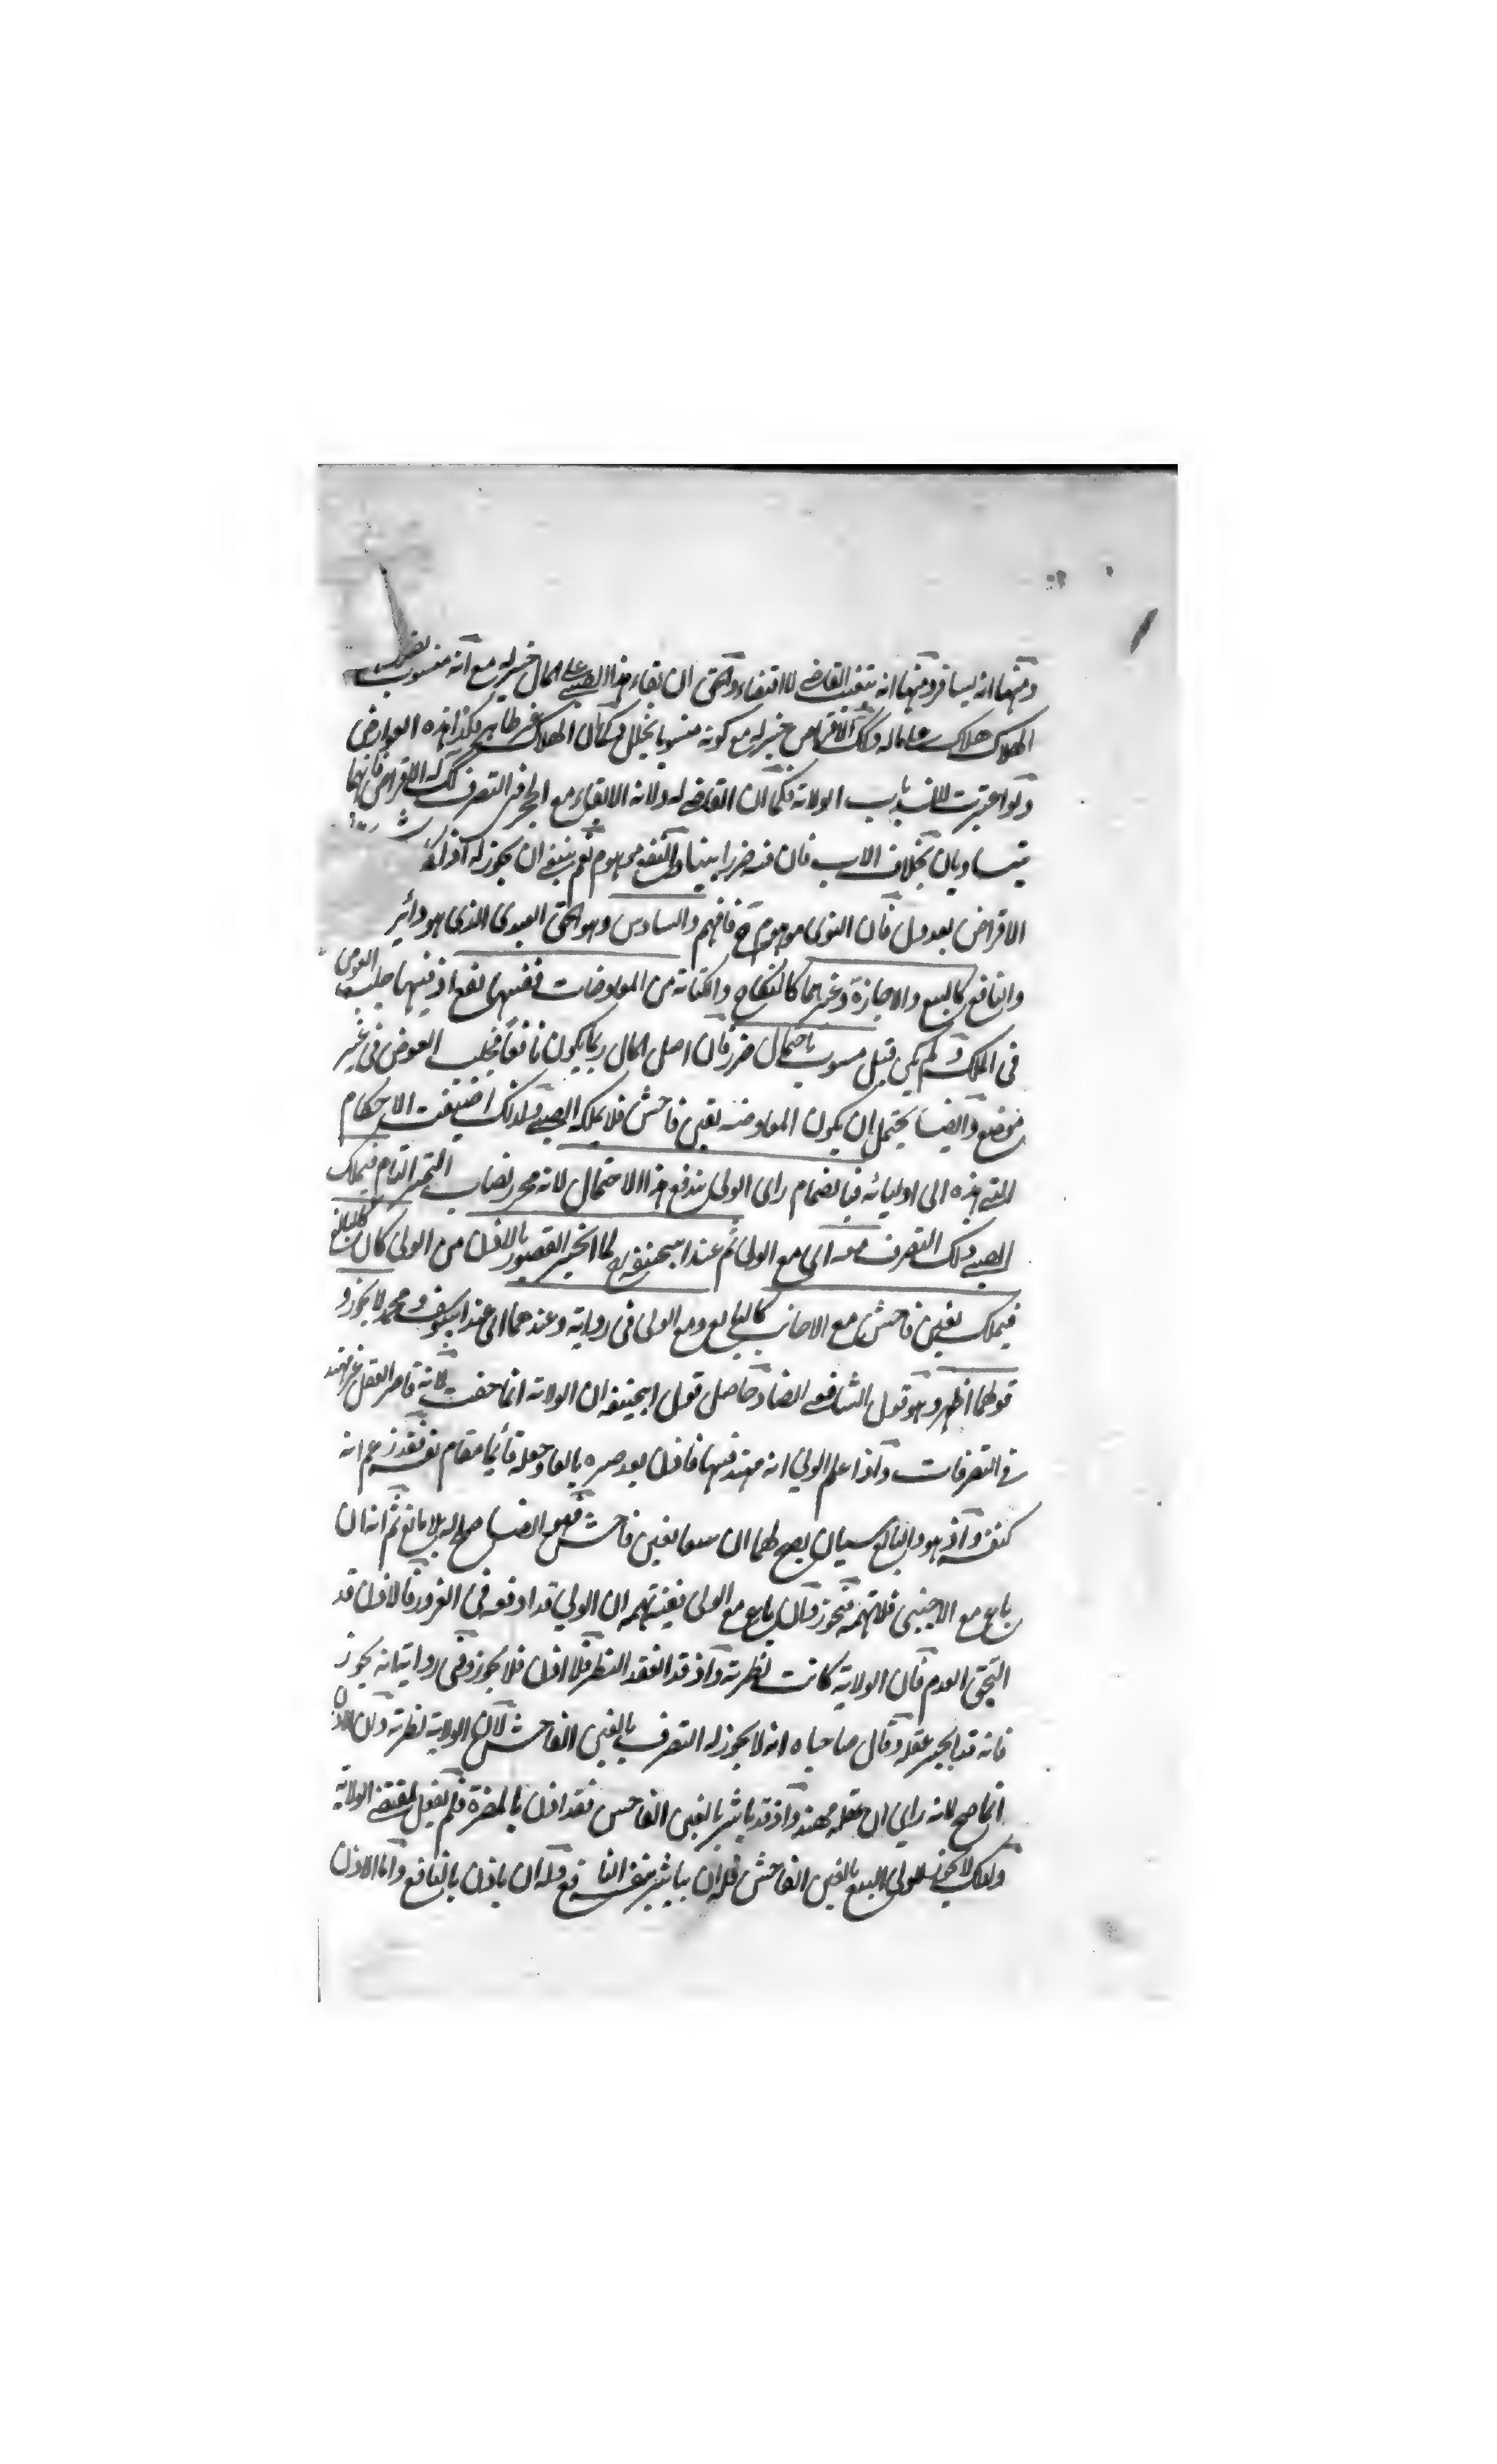 ومنها انه يسافر ومنها انه يتغيب القاضي لاقتضاء والحق ان بقاء هذا الصبي على المال خير له مع انه منسوب
الهلاك هلاك ماله وكذلك الاقراض خير له مع كونه منسوبا بخلل وكما ان الهلاك غير ظاهر فكذا هذه العوارض
ولو اعتبرت لانسد باب الولاية فكما ان القاضي له ولاية الابقاء مع الحجر في التصرف كذلك له الاقراض فانهما
متساويان بخلاف الاب فان فيه ضررا بينا والنفع موهوم نعم ينبغي ان يجوز له اذ ذاك
الاقراض بعدول فان التوى موهوم ح فافهم والسادس وهو الحق العبدي الذي هو دائر
والنافع كالبيع والاجازة وغيرهما كالنكاح والكتابة من المعاوضات ففيها نفع اذ فيها جلب العوض
في الملك ولم يكن قبل مشوب باحتمال ضرر فان اصل المال ربما يكون نافعا فجلب العوض في غير
موضع وايضا يحتمل ان يكون المعاوضة بغبن فاحش فلا يملكه الصبي ولذلك اضيفت الاحكام
هذه الى اوليائه فبانضمام راى الولى يندفع هذا الاحتمال لانه محرر نصاب التمييز التام فيملك
الصبي ذلك التصرف معه اى مع الولى ثم عند ابيحنيفة لما انجبر القصور بالاذن من الولى كان كالبالغ
فيملك بغبن فاحش مع الاجانب كالبايع ومع الولى في رواية وعندهما اى عند ابييوسف ومحمد لا يجوز و
قولهما اظهر وهو قول الشافعي ايضا وحاصل قول ابيحنيفة ان الولاية انما حقت لانه قاصر العقل غير مهتد
في التصرفات واذا علم الولي انه مهتد فيها فاذن بعد صبره بالغا وجعله قائما مقام نفسه فقد زعم انه
كنفسه واذ هو والبالغ سيان يصح لهما ان يبيعا بغبن فاحش فهو ايضا صالح له بلا مانع ثم انه ان
باع مع الاجنبي فلا تهمة فيجوز وان باع مع الولى ففيه تهمة ان الولي قد اوقعه في الغرور فالاذن قد
التحق العدم فان الولاية كانت نظرية واذ قد انفقد النظر فلا اذن فلا يجوز وفى رواية انه يجوز
فانه قد انجبر عقله وقال صاحباه انه لا يجوز له التصرف بالغبن الفاحش لان الولاية نظرية وان الاذن
انما صح لانه راى ان عقله مهتد واذ قد باشر بالغبن الفاحش فقد اذن بالمضرة فلم يفعل بمقتضى الولاية
ولذلك لا يجوز للولي البيع بالغبن الفاحش فله ان يباشر بنفسه النافع وله ان ياذن بالنافع واما الاذن